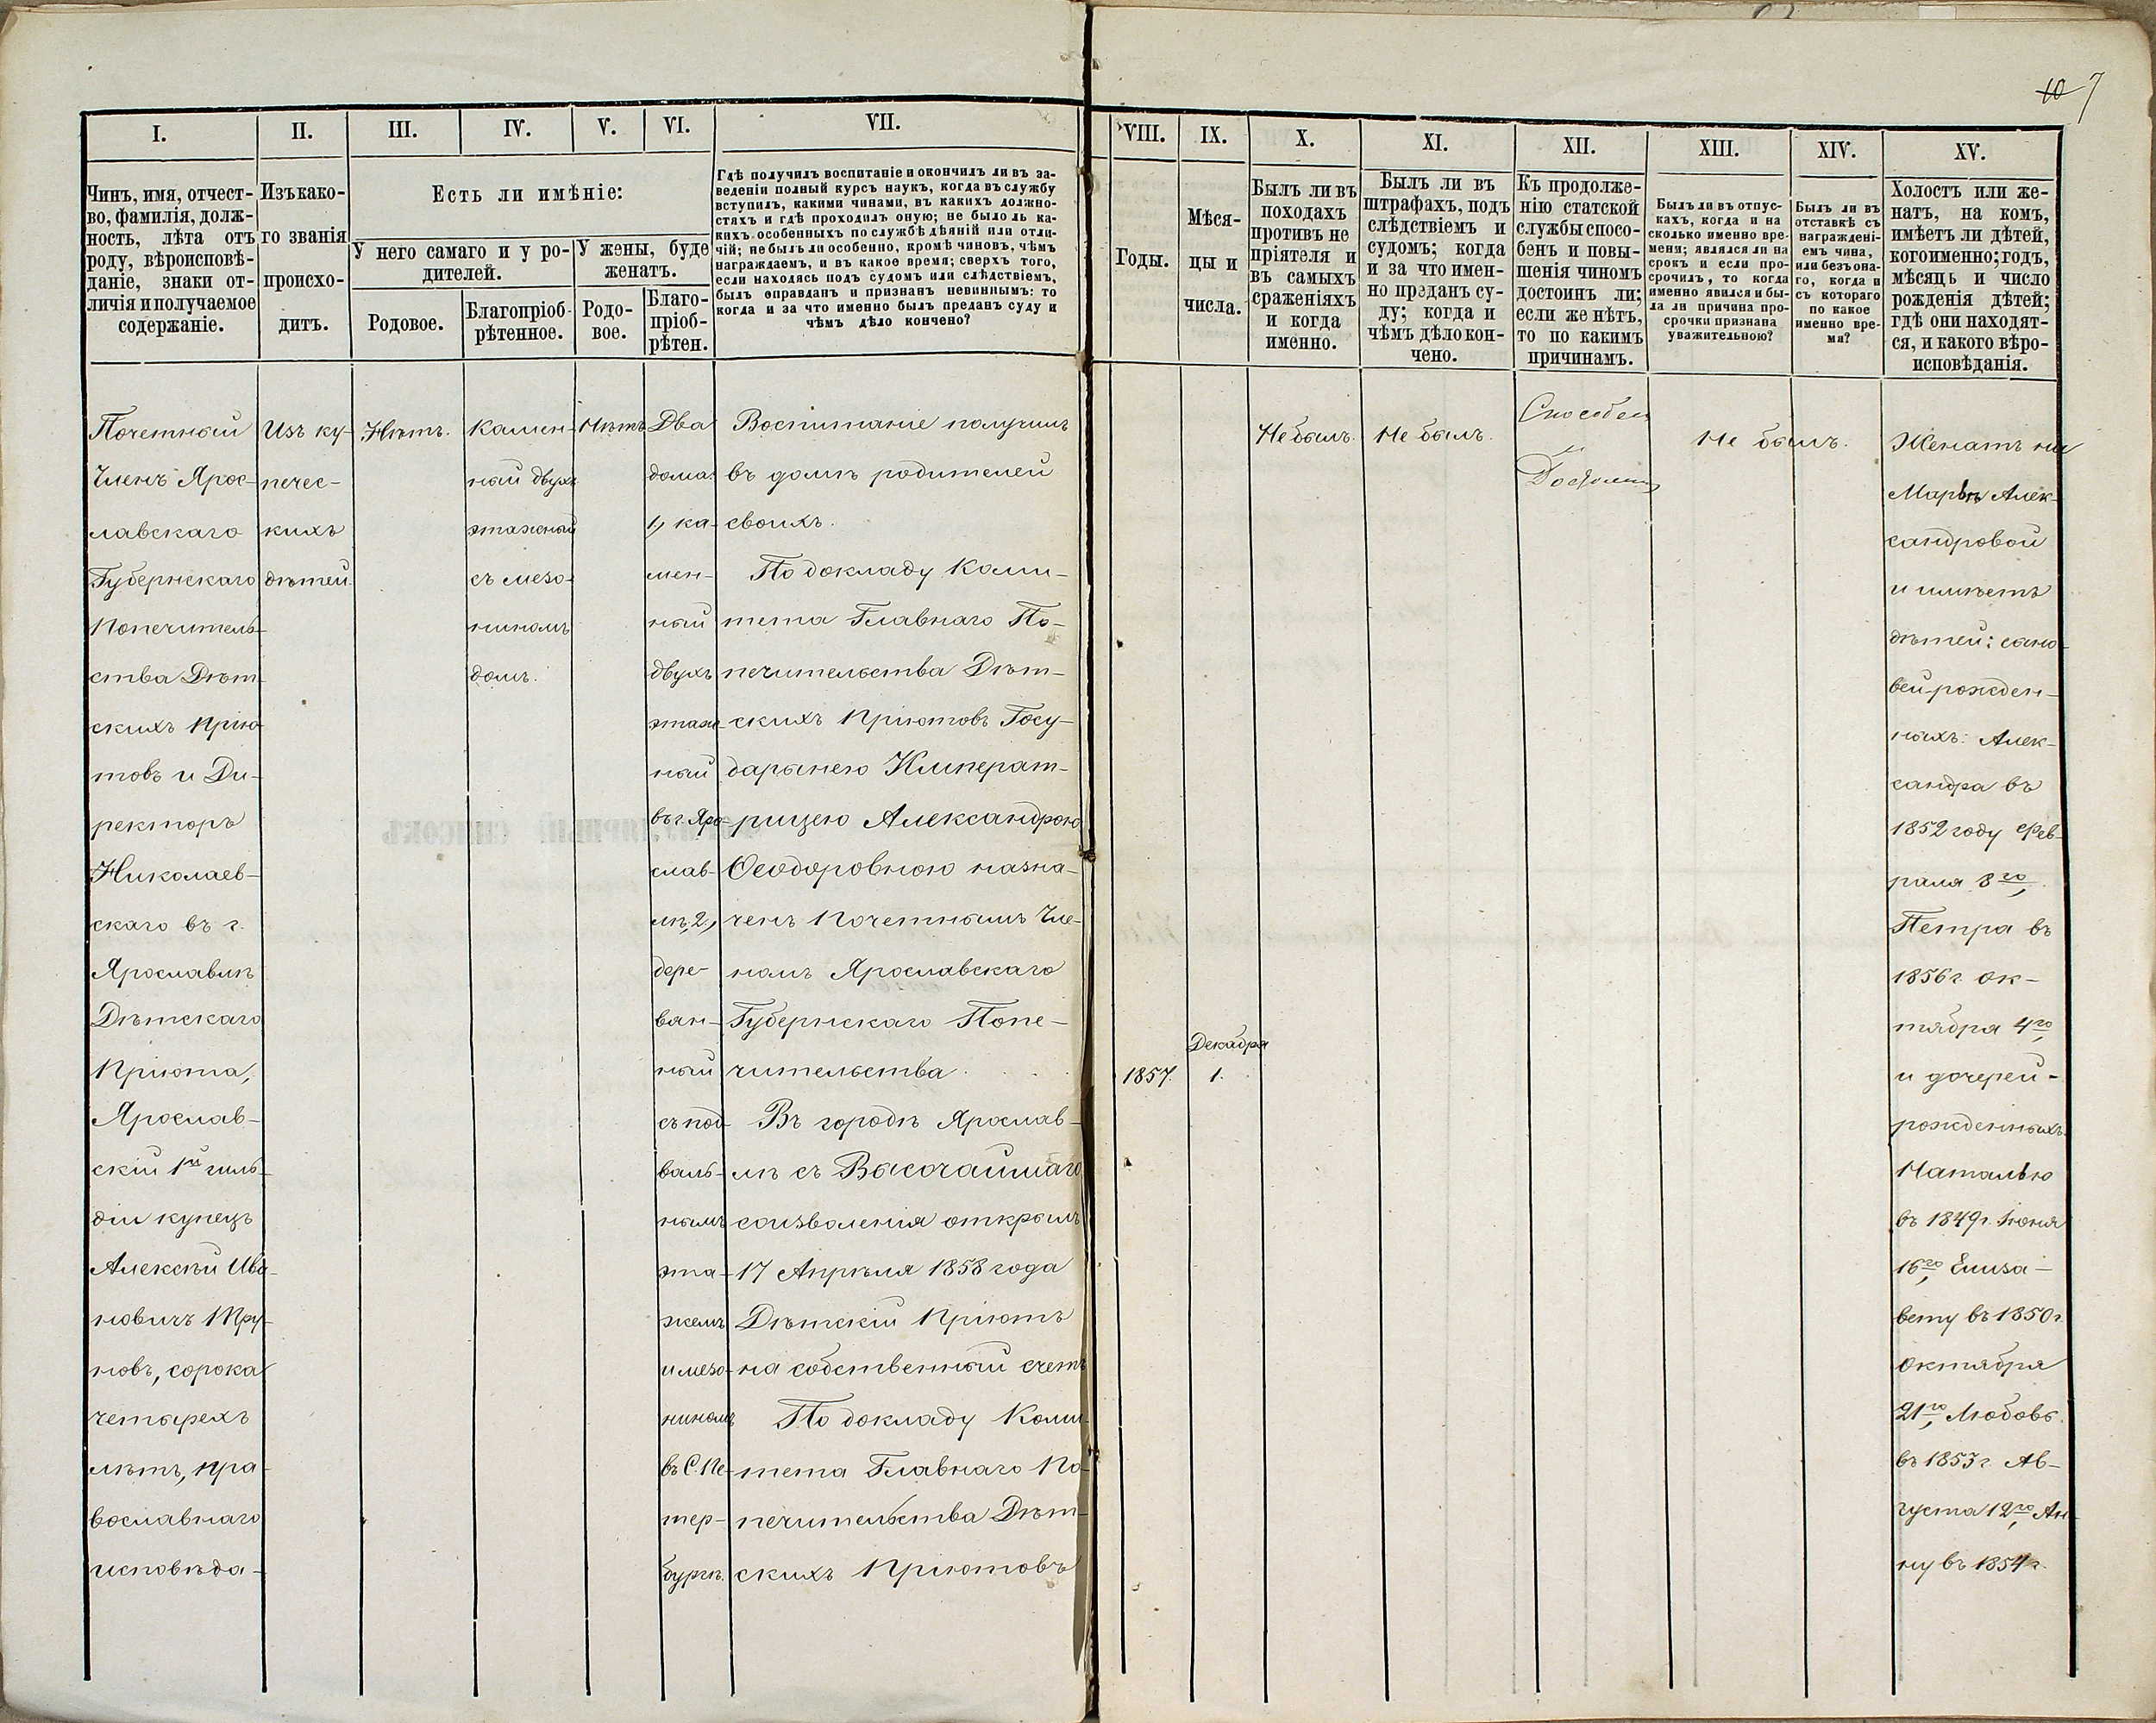 10 7
I.
II.
III.
IV.
V.
VI.
VII.
VIII.
IX.
X.
XI.
XII.
XIII.
XIV.
XV.
Чинъ, имя, отчест-
во, фамилія, долж-
ность, лѣта отъ
роду, вѣроисповѣ-
даніе, знаки от-
личія и получаемое
содержаніе.
Изъ како-
го званія
происхо-
дитъ.
Есть ли имѣніе:
У него самаго и у ро-
дителей.
У жены, буде
женатъ.
Родовое.
Благопріоб-
рѣтенное.
Родо-
вое.
Благо-
пріоб-
рѣтен.
Гдѣ получилъ воспитаніе и окончилъ ли въ за-
веденіи полный курсъ наукъ, когда въ службу
вступилъ, какими чинами, въ какихъ должно-
стяхъ и гдѣ проходилъ оную; не было ль ка-
кихъ особенныхъ по службѣ дѣяній или отли-
чій; не былъ ли особенно, кромѣ чиновъ, чѣмъ
награждаемъ, и въ какое время; сверхъ того,
если находясь подъ судомъ или слѣдствіемъ,
былъ оправданъ и признанъ невиннымъ: то
когда и за что именно былъ преданъ суду и
чѣмъ дѣло кончено?
Годы.
Мѣся-
цы и
числа.
Былъ ли въ
походахъ
противъ не
пріятеля и
въ самыхъ
сраженіяхъ
и когда
именно.
Былъ ли въ
штрафахъ, подъ
слѣдствіемъ и
судомъ; когда
и за что имен-
но преданъ су-
ду; когда и
чѣмъ дѣло кон-
чено.
Къ продолже-
нію статской
службы спосо-
бенъ и повы-
шенія чиномъ
достоинъ ли;
если же нѣтъ,
то по какимъ
причинамъ.
Былъ ли въ отпус-
кахъ, когда и на
сколько именно вре-
мени; являлся ли на
срокъ и если про-
срочилъ, то когда
именно явился и бы-
ла ли причина про-
срочки признана
уважительною?
Былъ ли въ
отставкѣ съ
награжденi-
емъ чина,
или безъ она-
го, когда и
съ котораго
по какое
именно вре-
мя?
Холостъ или же-
натъ, на комъ,
имѣетъ ли дѣтей,
кого именно; годъ,
мѣсяцъ и число
рожденія дѣтей;
гдѣ они находят-
ся, и какого вѣро-
исповѣданія.
Почетный
Членъ Ярос-
лавскаго
Губернскаго
Попечитель-
ства Дѣт-
скихъ Прію-
товъ и Ди-
ректоръ
Николаев-
скаго въ г.
Ярославлѣ
Дѣтскаго
Пріюта,
Ярослав-
скій 1й гиль-
діи купецъ
Алексѣй Ива-
новичъ Тру-
новъ, сорока
четырехъ
лѣтъ, пра-
вославнаго
исповѣда-
Изъ ку-
печес-
кихъ
дѣтей.
Нѣтъ.
Камен-
ный двухъ
этажный
съ мезо-
ниномъ
домъ.
Нѣтъ
Два
дома:
1, ка-
мен-
ный
двухъ
этаж-
ный
въ г. Яро-
слав-
лѣ, 2,
дере-
вян-
ный
съ под-
валь-
нымъ
эта-
жемъ
и мезо-
ниномъ
въ С. Пе-
тер-
бургѣ.
Воспитаніе получилъ
въ домѣ родителей
своихъ.
По докладу Коми-
тета Главнаго По-
печительства Дѣт-
скихъ Пріютовъ Госу-
дарынею Императ-
рицею Александрою
Ѳеодоровною назна-
ченъ Почетнымъ Чле-
номъ Ярославскаго
Губернскаго Попе-
чительства . . . .
Въ городѣ Ярослав-
лѣ съ Высочайшаго
соизволенія открылъ
17 Апрѣля 1858 года
Дѣтскій Пріютъ
на собственный счетъ
По докладу Коми-
тета Главнаго По-
печительства Дѣт-
скихъ Пріютовъ
1857.
Декабря
1.
Не былъ.
Не былъ.
Способенъ
и
Достоинъ
Не былъ.
Женатъ на
Марьѣ Алек-
сандровой
и имѣетъ
дѣтей: сыно-
вей-рожден-
ныхъ: Алек-
сандра въ
1852 году Фев-
раля 8го,
Петра въ
1856 г. Ок-
тября 4го,
и дочерей-
рожденныхъ:
Наталью
въ 1849 г. Июня
16го, Елиза-
вету въ 1850 г.
Октября
21го, Любовь
въ 1853 г. Ав-
густа 12го, Ан-
ну въ 1854 г.